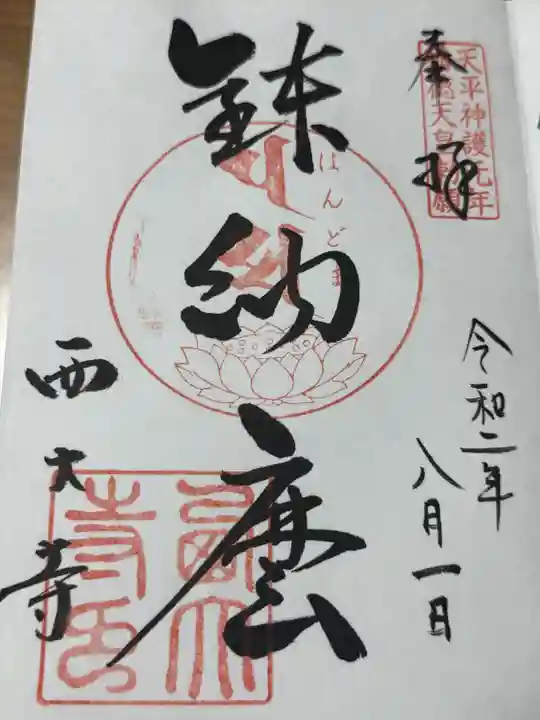 奉拝
天平神護元年
称徳天皇勅願
令和二年
八月一日
鉢納麼
はんどま
西大寺